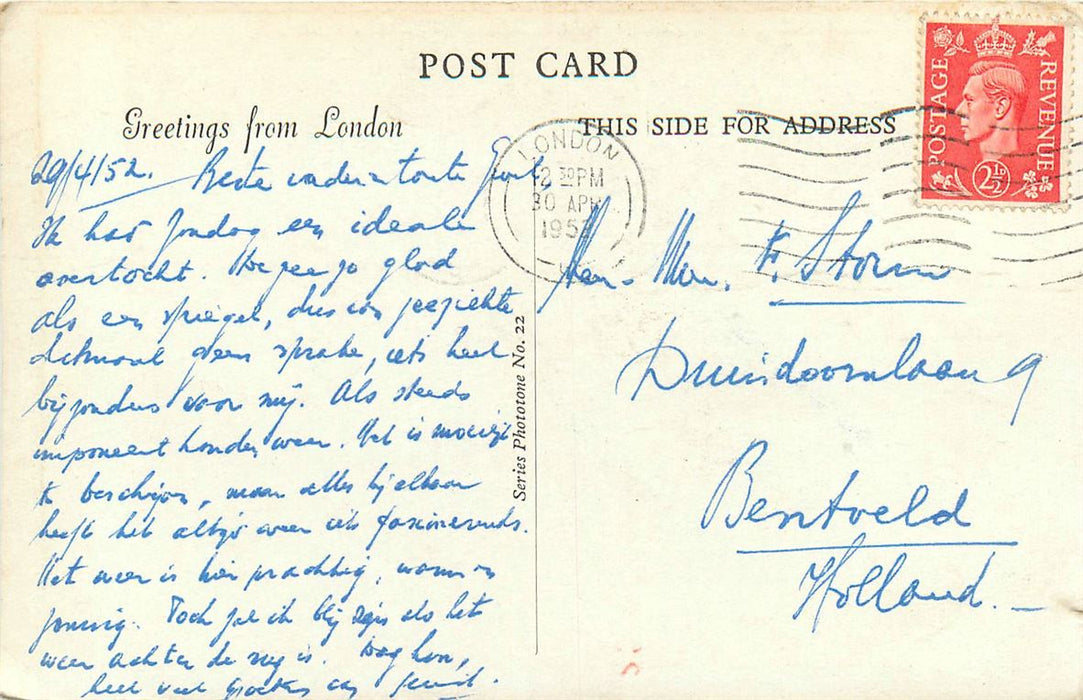 POST CARD
Greetings from London
THIS SIDE FOR ADDRESS
POSTAGE REVENUE
2½D
LONDON
12 30 PM
30 APR
195
29/4/52. Beste
Ik had Zondag een ideale
overtocht. De zee zo glad
als een spiegel, dus van zeeziekte
ditmaal geen sprake, iets heel
bijzonders voor mij. Als steeds
imponeert Londen weer. Het is moeilijk
te beschrijven, maar alles bij elkaar
heeft het altijd weer iets fascinerends.
Het weer is hier prachtig, warm en
zonnig. Toch zal ik blij zijn als het
weer achter de rug is. Dag hoor,
heel veel groeten van
Series Phototone No. 22
F. Storm
Duindoornlaan 9
Bentveld
Holland.